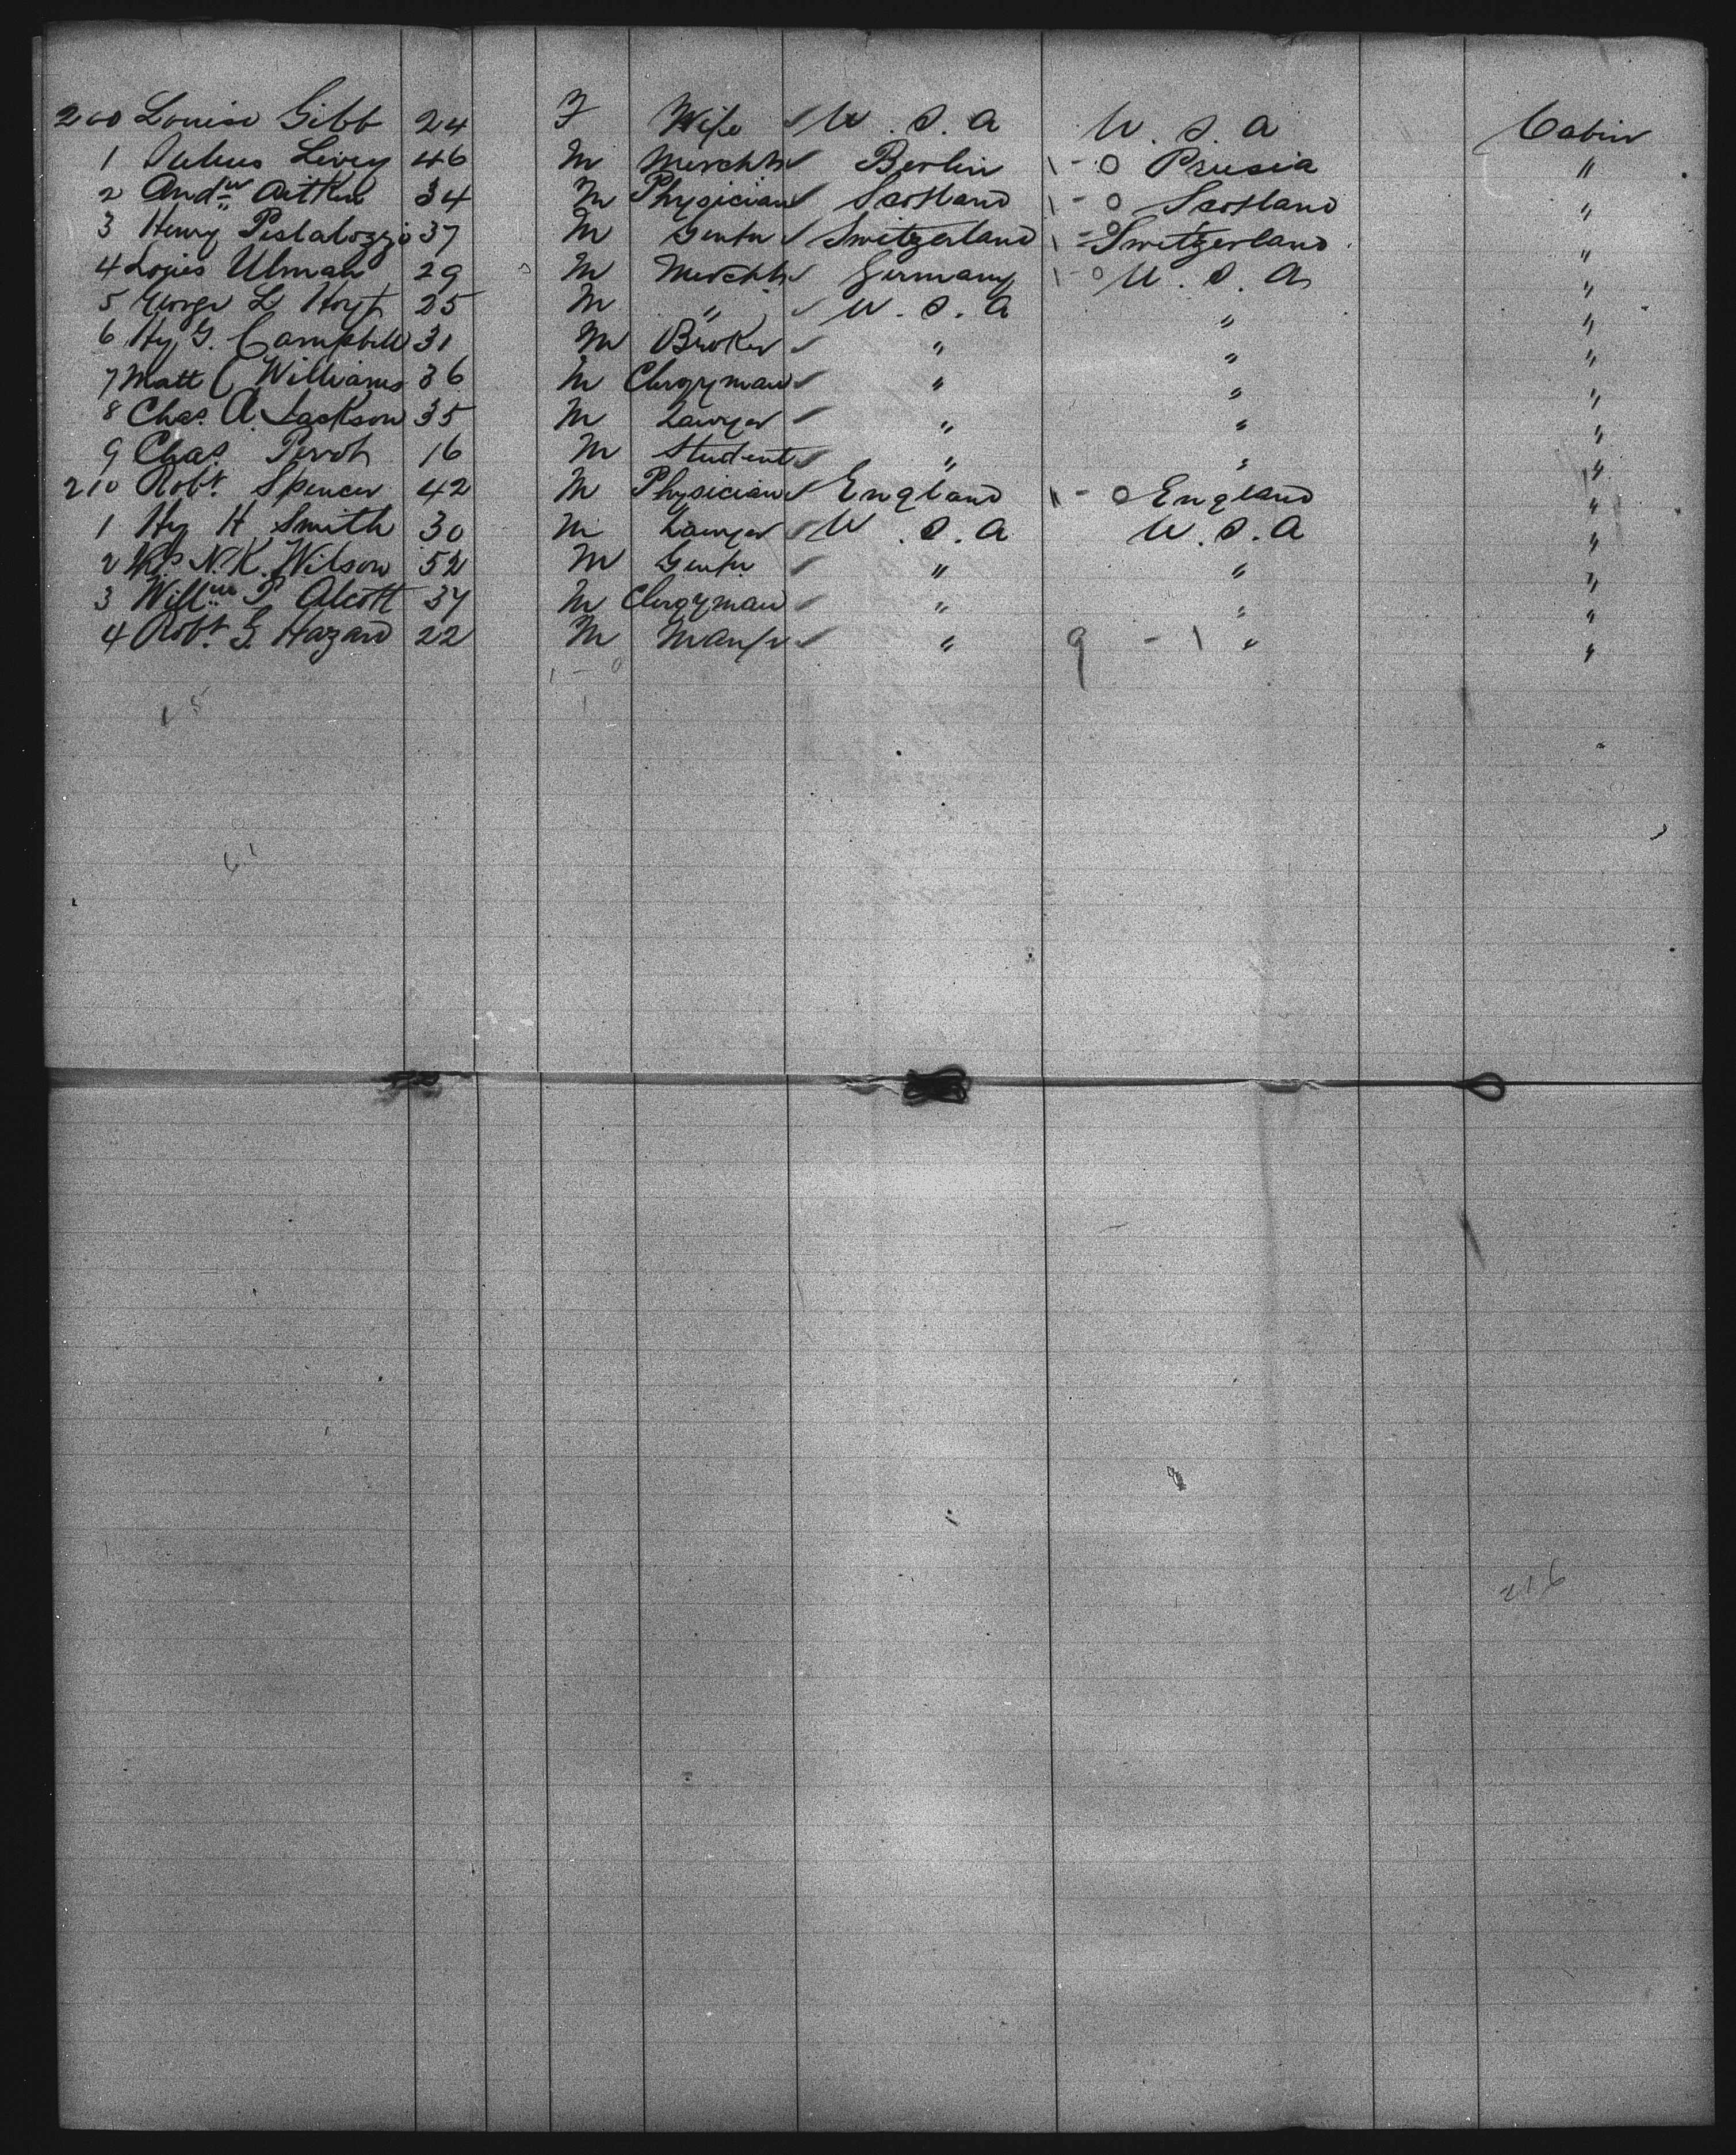 200 Louise Gibb 24 F Wife ✓ U.S.A U.S.A Cabin
1 Julius Levey 46 M Mercht ✓ Berlin 1 - 0 Prusia "
2 Andw Aitken 34 M Physician ✓ Scotland 1 - 0 Scotland "
3 Henry Pestalozzi 37 M Gentn ✓ Switzerland 1 - 0 Switzerland "
4 Louis Ulman 29 M Mercht ✓ Germany 1 - 0 U.S.A "
5 George L Hoyt 25 M " ✓ U.S.A " "
6 Hy G. Campbell 31 M Broker ✓ " " "
7 Matt C Williams 36 M Clergyman ✓ " " "
8 Chas. A. Jackson 35 M Lawyer ✓ " " "
9 Chas. 16 M Student ✓ " " "
210 Robt. Spencer 42 M Physician ✓ England 1 - 0 England "
1 Hy H Smith 30 M Lawyer ✓ U.S.A U.S.A "
2 N.K. Wilson 52 M Gentn ✓ " " "
3 Willm P Alcott 37 M Clergyman ✓ " " "
4 Robt. G Hazard 22 M Manfr ✓ " 9 - 1 " "
1 - 0
1
15
61
216